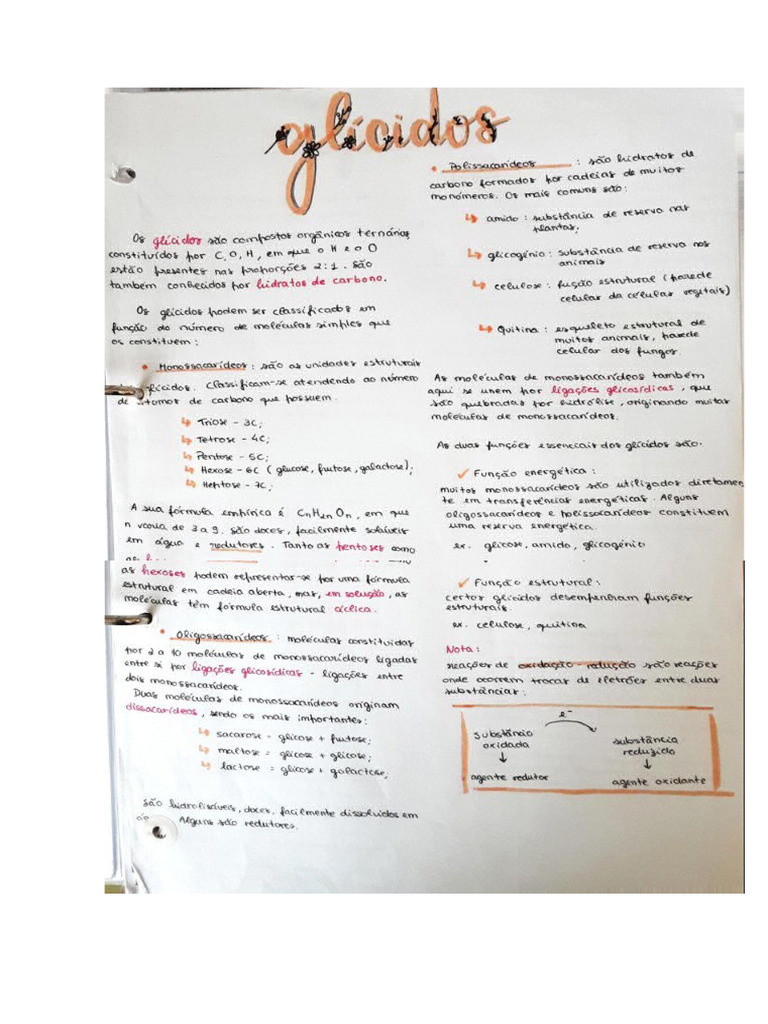 glícidos
Os glícidos são compostos orgânicos ternários,
constituídos por C, O, H, em que o H e o O
estão presentes nas proporções 2:1. São
também conhecidos por hidratos de carbono.
Os glícidos podem ser classificados em
função do número de moléculas simples que
os constituem:
• Monossacarídeos: são as unidades estruturais
glícidos. Classificam-se atendendo ao número
de átomos de carbono que possuem.
↳ Triose - 3C;
↳ Tetrose - 4C;
↳ Pentose - 5C;
↳ Hexose - 6C (glucose, frutose, galactose);
↳ Heptose - 7C;
A sua fórmula empírica é CnH2nOn, em que
n varia de 3 a 9. São doces, facilmente solúveis
em água e redutores. Tanto as pentoses como
as hexoses podem representar-se por uma fórmula
estrutural em cadeia aberta, mas, em solução, as
moléculas têm fórmula estrutural cíclica.
• Oligossacarídeos: moléculas constituídas
por 2 a 10 moléculas de monossacarídeos ligadas
entre si por ligações glicosídicas - ligações entre
dois monossacarídeos.
Duas moléculas de monossacarídeos originam
dissacarídeos, sendo os mais importantes:
↳ sacarose = glicose + frutose;
↳ maltose = glicose + glicose;
↳ lactose = glicose + galactose;
São hidrolisáveis, doces, facilmente dissolvidos em
Alguns são redutores.
• Polissacarídeos: são hidratos de
carbono formados por cadeias de muitos
monómeros. Os mais comuns são:
↳ amido: substância de reserva nas
plantas;
↳ glicogénio: substância de reserva nos
animais
↳ celulose: fução estrutural (parede
celular da células vegetais)
↳ Quitina: esqueleto estrutural de
muitos animais, parede
celular dos fungos.
As moléculas de monossacarídeos também
aqui se unem por ligações glicosídicas, que
são quebradas por hidrólise, originando muitas
moléculas de monossacarídeos.
As duas funções essenciais dos glícidos são:
✓ Função energética:
muitos monossacarídeos são utilizados diretamen
te em transferências energéticas. Alguns
oligossacarídeos e polissacarídeos constituem
uma reserva energética.
ex. glicose, amido, glicogénio
✓ Função estrutural:
certos glícidos desempenham funções
estruturais.
ex. celulose, quitina
Nota:
reações de oxidação-redução são reações
onde ocorrem trocas de eletrões entre duas
substâncias:
e⁻
Substância
oxidada
↓
agente redutor
substância
reduzida
↓
agente oxidante